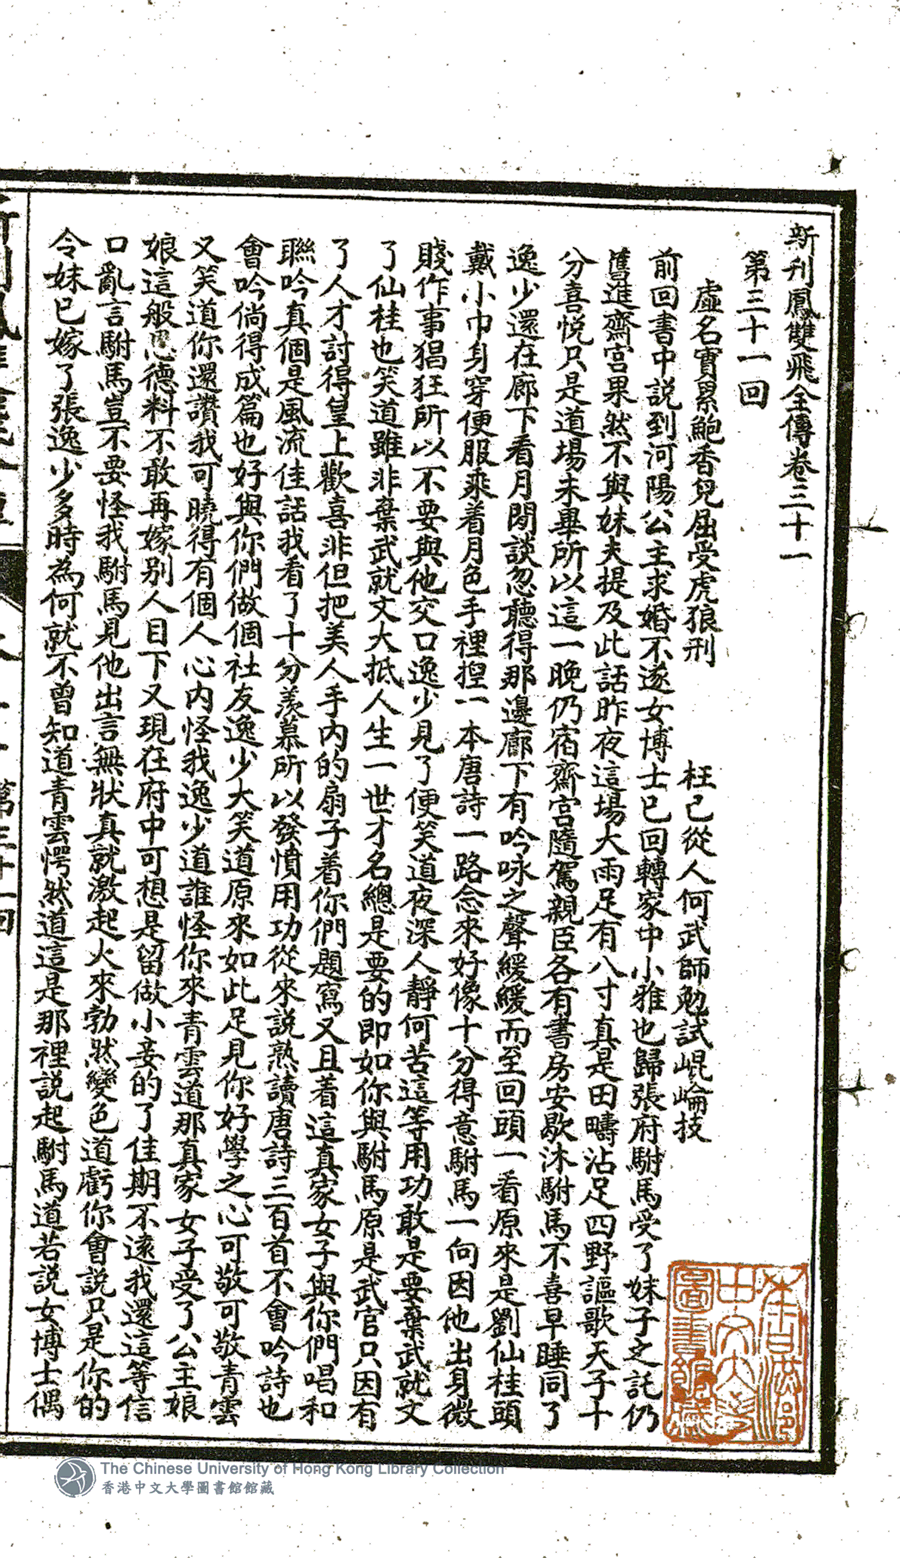 新刊鳳雙飛全傳卷三十一
第三十一回
虛名實累鮑香兒屈受虎狼刑　枉己從人何武師勉試崐崘技
前回書中説到河陽公主求婚不遂女博士已回轉家中小雅也歸張府駙馬受了妹子之託仍
舊進齋宮果然不與妹夫提及此話昨夜這場大雨足有八寸真是田疇沾足四野謳歌天子十
分喜悅只是道場未畢所以這一晚仍宿齋宮隨駕親臣各有書房安歇沐駙馬不喜早睡同了
逸少還在廊下看月閒談忽聽得那邊廊下有吟咏之聲緩緩而至回頭一看原來是劉仙桂頭
戴小巾身穿便服乘着月色手裡揑一本唐詩一路念來好像十分得意駙馬一向因他出身微
賤作事猖狂所以不要與他交口逸少見了便笑道夜深人靜何苦這等用功敢是要棄武就文
了仙桂也笑道雖非棄武就文大抵人生一世才名總是要的即如你與駙馬原是武官只因有
了人才討得皇上歡喜非但把美人手内的扇子着你們題寫又且着這真家女子與你們唱和
聯吟真個是風流佳話我看了十分羨慕所以發憤用功從來説熟讀唐詩三百首不會吟詩也
會吟倘得成篇也好與你們做個社友逸少大笑道原來如此足見你好學之心可敬可敬青雲
又笑道你還讚我可曉得有個人心内怪我逸少道誰怪你來青雲道那真家女子受了公主娘
娘這般恩德料不敢再嫁别人目下又現在府中可想是留做小妾的了佳期不遠我還這等信
口亂言駙馬豈不要怪我駙馬見他出言無狀真就激起火來勃然變色道虧你會説只是你的
令妹已嫁了張逸少多時為何就不曾知道青雲愕然道這是那裡説起駙馬道若説女博士偶
第三十一回
香港中文大學圖書館藏
The Chinese University of Hong Kong Library Collection
香港中文大學圖書館館藏